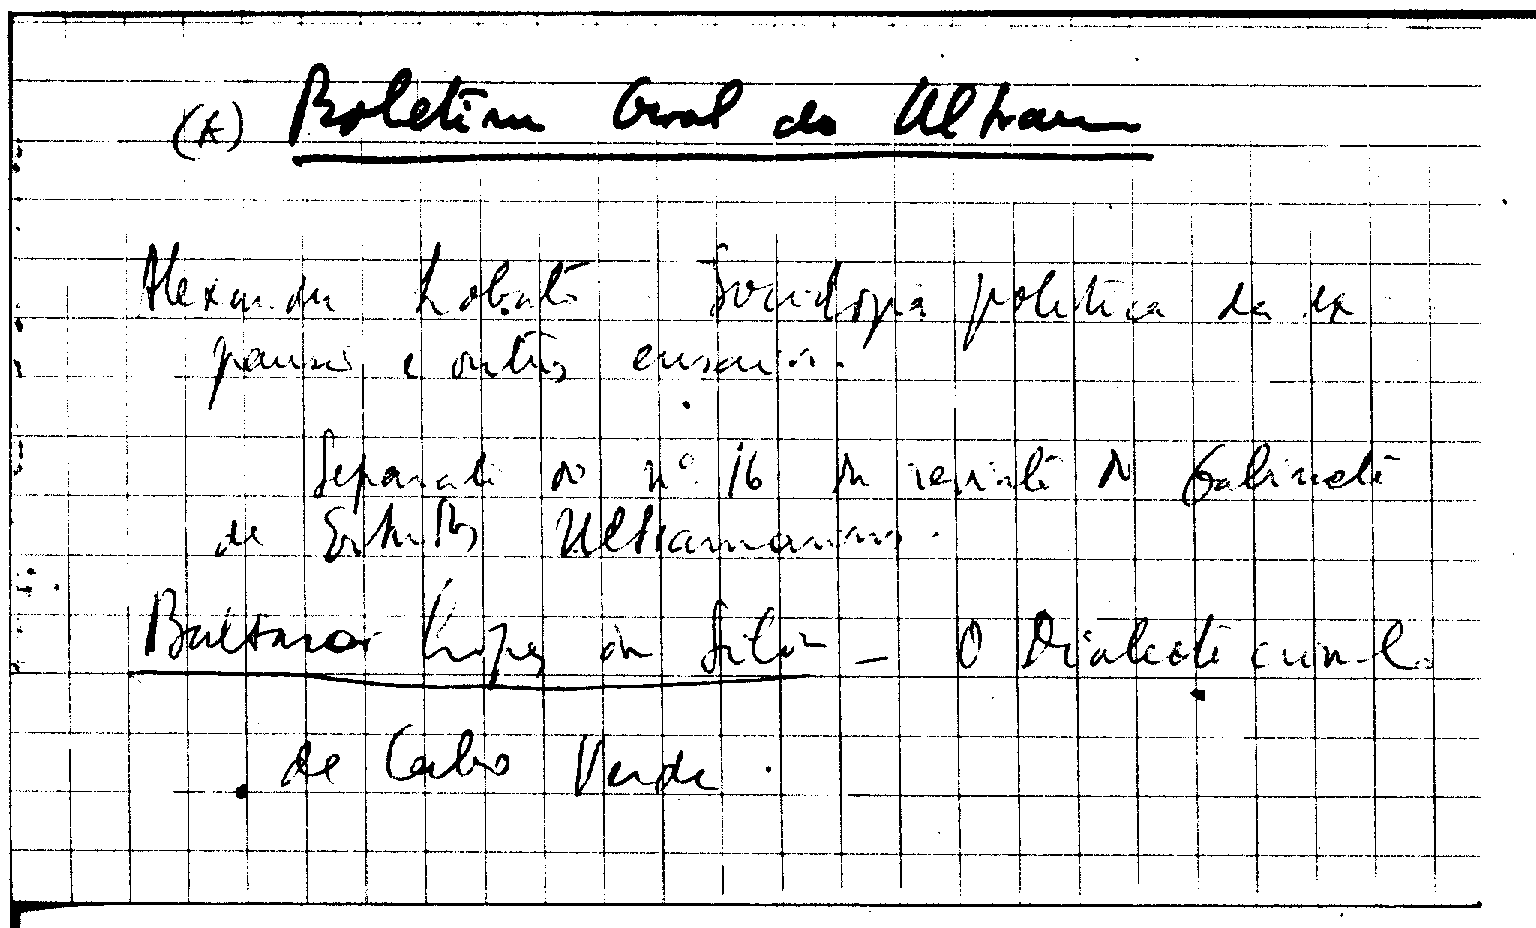 (A) Boletim Geral do Ultramar
Alexandre Lobato Sociologia politica da ex
pansão e outros ensaios.
Separata do nº 16 da revista do Gabinete
de Estudos Ultramarinos.
Baltasar Lopes da Silva – O Dialecto crioulo
de Cabo Verde.